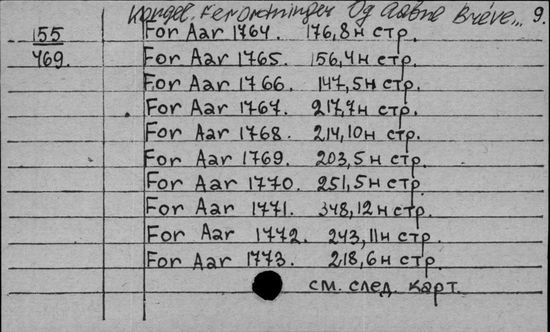 Kongel. Forordninger Og Aabne Bréve... 9.
155 For Aar 1764. 176,8н стр.
469. For Aar 1765. 156,4н стр.
For Aar 1766. 147,5н стр.
For Aar 1767. 217,7н стр.
For Aar 1768. 214,10н стр.
For Aar 1769. 203,5н стр.
For Aar 1770. 251,5н стр.
For Aar 1771. 348,12н стр.
For Aar 1772. 243,11н стр.
For Aar 1773. 218,6н стр.
см. след. карт.